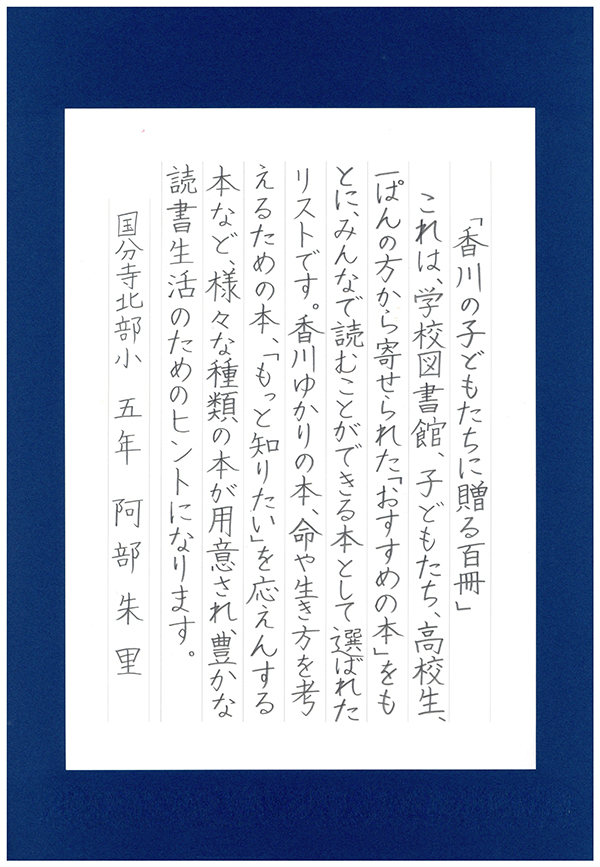 「香川の子どもたちに贈る百冊」
これは、学校図書館、子どもたち、高校生、
一ぱんの方から寄せられた「おすすめの本」をも
とに、みんなで読むことができる本として選ばれた
リストです。香川ゆかりの本、命や生き方を考
えるための本、「もっと知りたい」を応えんする
本など、様々な種類の本が用意され、豊かな
読書生活のためのヒントになります。
国分寺北部小 五年 阿部朱里